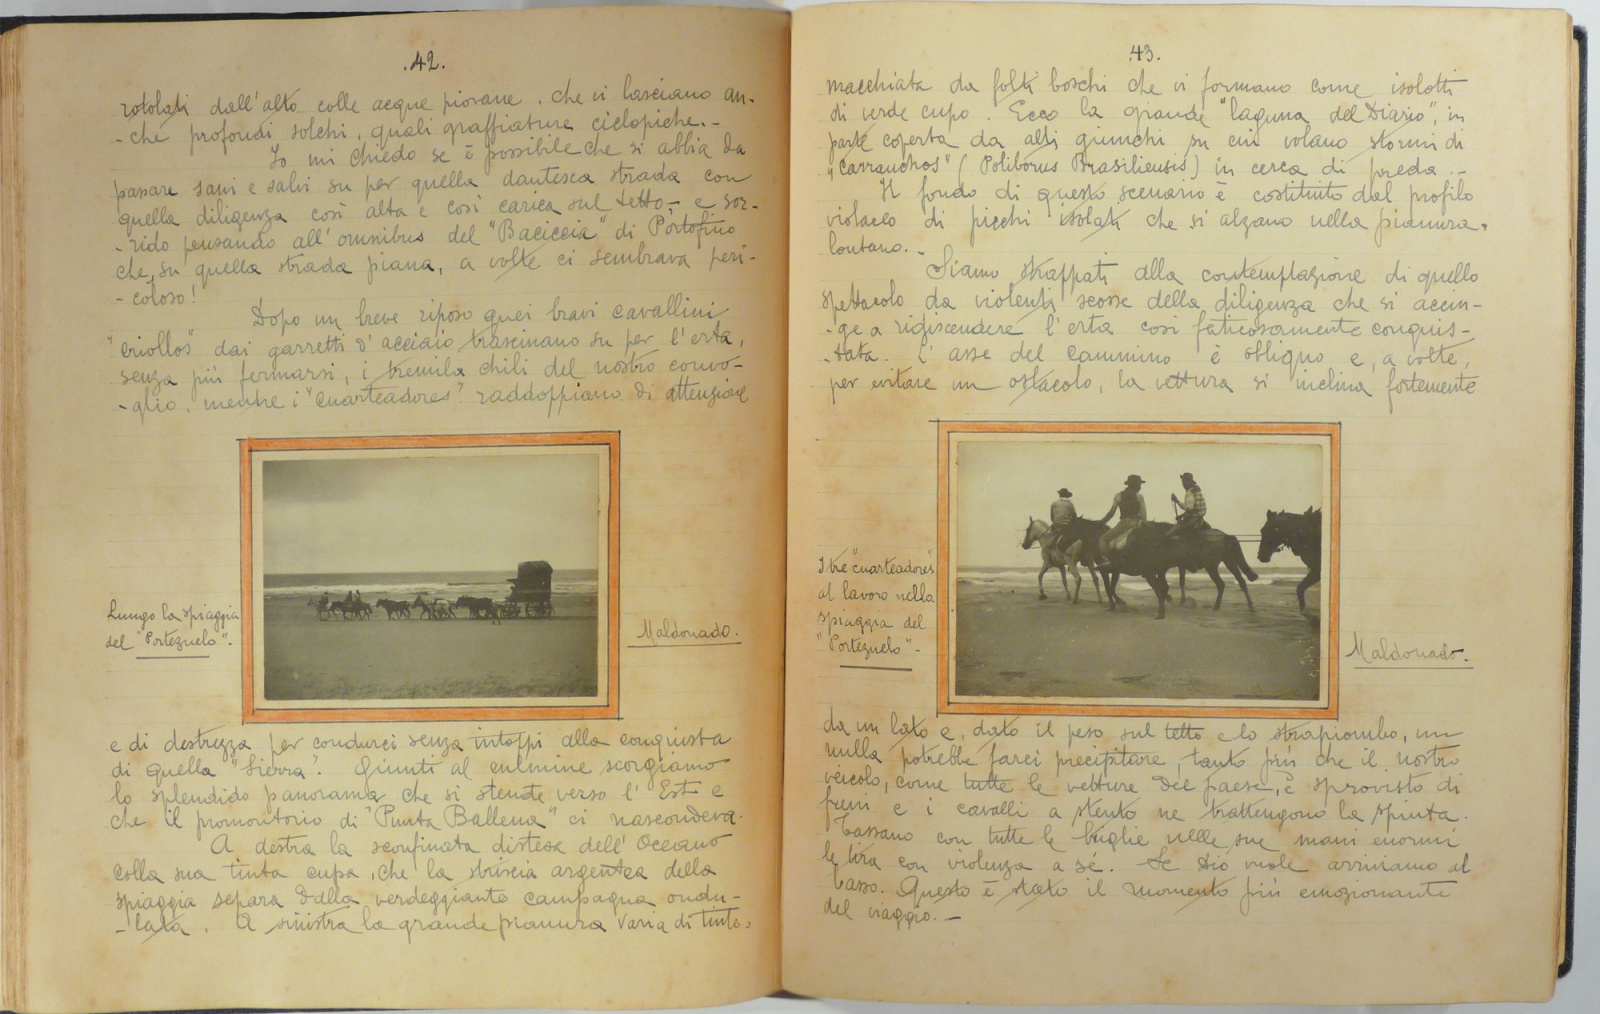 .42.
rotolati dall'alto colle acque piovane, che vi lasciano an-
-che profondi solchi, quali graffiature ciclopiche.-
Io mi chiedo se è possibile che si abbia da
passare sani e salvi su per quella dantesca strada con
quella diligenza così alta e così carica sul tetto,- e sor-
-rido pensando all'omnibus del "Baciccia" di Portofino
che, su quella strada piana, a volte ci sembrava peri-
-coloso!
Dopo un breve riposo quei bravi cavallini
"criollos" dai garretti d'acciaio trascinano su per l'erta,
senza più fermarsi, i tremila chili del nostro convo-
-glio, mentre i "cuarteadores" raddoppiano di attenzione
Lungo la spiaggia
del "Portezuelo".
Maldonado.
e di destrezza per condurci senza intoppi alla conquista
di quella "Sierra". Giunti al culmine scorgiamo
lo splendido panorama che si stende verso l'Est e
che il promontorio di "Punta Ballena" ci nascondeva.
A destra la sconfinata distesa dell'Oceano
colla sua tinta cupa, che la striscia argentea della
spiaggia separa dalla verdeggiante campagna ondu-
-lata. A sinistra la grande pianura varia di tinte,
.43.
macchiata da folti boschi che vi formano come isolotti
di verde cupo. Ecco la grande "laguna del Diario", in
parte coperta da alti giunchi su cui volano stormi di
"carranchos" (Poliborus Brasiliensis) in cerca di preda.-
Il fondo di questo scenario è costituito dal profilo
violaceo di picchi isolati che si alzano nella pianura
lontano.-
Siamo strappati alla contemplazione di quello
spettacolo da violenti scosse della diligenza che si accin-
-ge a ridiscendere l'erta così faticosamente conquis-
-tata. L'asse del cammino è obliquo e, a volte,
per evitare un ostacolo, la vettura si inclina fortemente
I tre "cuarteadores"
al lavoro nella
spiaggia del
"Portezuelo".-
Maldonado.
da un lato e, dato il peso sul tetto e lo strapiombo, un
nulla potrebbe farci precipitare, tanto più che il nostro
veicolo, come tutte le vetture del paese, è sprovisto di
freni e i cavalli a stento ne trattengono la spinta.
Tassano con tutte le briglie nelle sue mani enormi
le tira con violenza a sé. Se Dio vuole arriviamo al
basso. Questo è stato il momento più emozionante
del viaggio.-